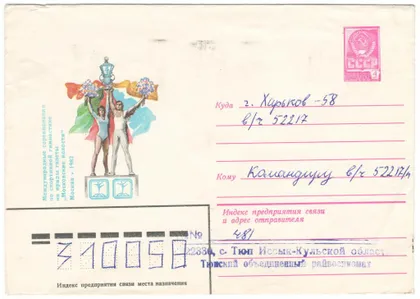 Международные соревнования
по спортивной гимнастике
на призы газеты
"Московские новости"
Москва • 1982
СССР
4
Куда г. Харьков-58
в/ч 52217
Кому Командиру в/ч 52217/
Индекс предприятия связи
и адрес отправителя
№ 481
с. Тюп Иссык-Кульской област
Тюпский объединенный райвоенкомат
310058
Индекс предприятия связи места назначения